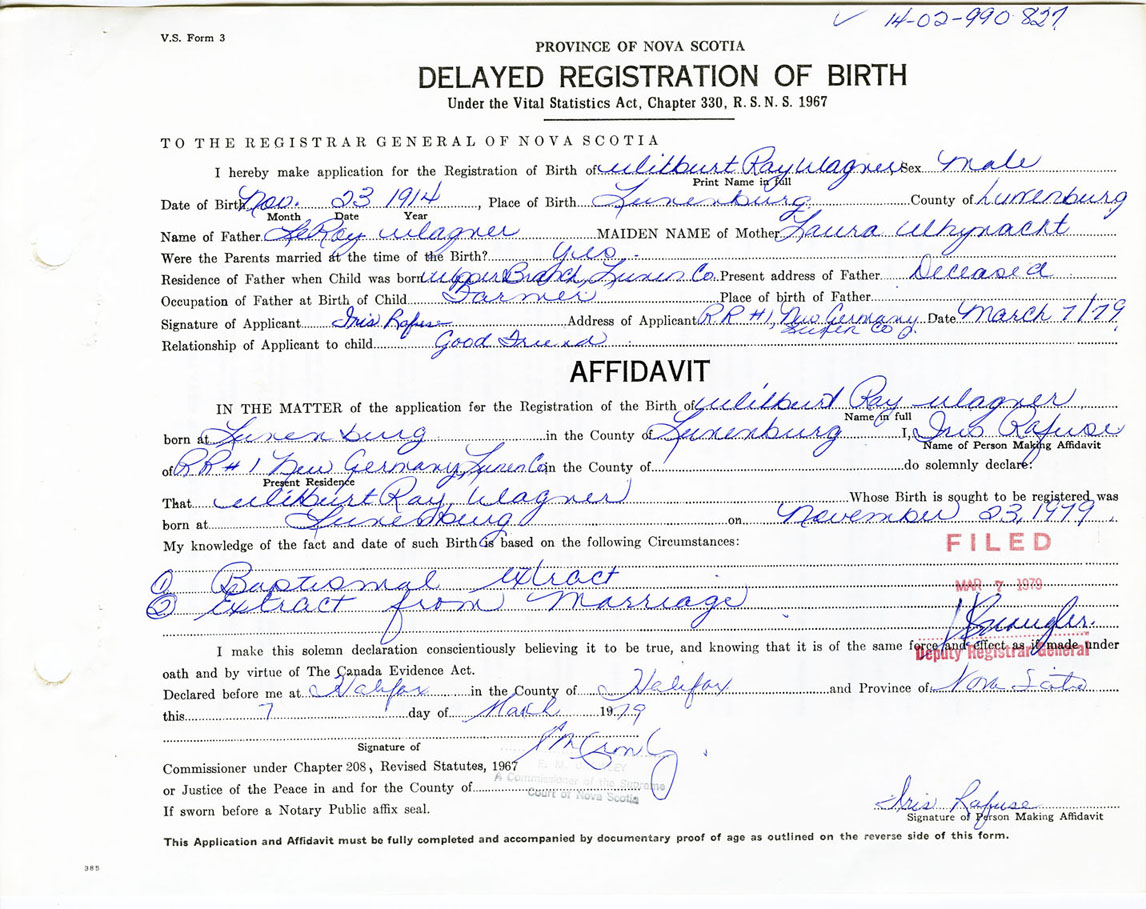 ✓ 14-02-990827
V.S. Form 3
PROVINCE OF NOVA SCOTIA
DELAYED REGISTRATION OF BIRTH
Under the Vital Statistics Act, Chapter 330, R. S. N. S. 1967
TO THE REGISTRAR GENERAL OF NOVA SCOTIA
I hereby make application for the Registration of Birth of Wilburt Ray Wagner Sex Male
Print Name in full
Date of Birth Nov. 23 1914, Place of Birth Lunenburg County of Lunenburg
Month Date Year
Name of Father LeRoy Wagner MAIDEN NAME of Mother Laura Whynacht
Were the Parents married at the time of the Birth? Yes
Residence of Father when Child was born Upper Branch, Lunen Co. Present address of Father Deceased
Occupation of Father at Birth of Child Farmer Place of birth of Father
Signature of Applicant Iris Rafuse Address of Applicant RR #1, New Germany Date March 7/79
Lunen Co
Relationship of Applicant to child Good Friend
AFFIDAVIT
IN THE MATTER of the application for the Registration of the Birth of Wilburt Ray Wagner
Name in full
born at Lunenburg in the County of Lunenburg I, Iris Rafuse
Name of Person Making Affidavit
of RR #1 New Germany, Lunen Co in the County of do solemnly declare:
Present Residence
That Wilburt Ray Wagner Whose Birth is sought to be registered was
born at Lunenburg on November 23, 1979.
My knowledge of the fact and date of such Birth is based on the following Circumstances:
FILED
① Baptismal extract
MAR 7 1979
② extract from Marriage
Deputy Registrar General
I make this solemn declaration conscientiously believing it to be true, and knowing that it is of the same force and effect as if made under
oath and by virtue of The Canada Evidence Act.
Declared before me at Halifax in the County of Halifax and Province of Nova Scotia
this 7 day of March 1979
Signature of
Commissioner under Chapter 208, Revised Statutes, 1967
A Commissioner of the Supreme
or Justice of the Peace in and for the County of
Court of Nova Scotia
Iris Rafuse
If sworn before a Notary Public affix seal.
Signature of Person Making Affidavit
This Application and Affidavit must be fully completed and accompanied by documentary proof of age as outlined on the reverse side of this form.
385